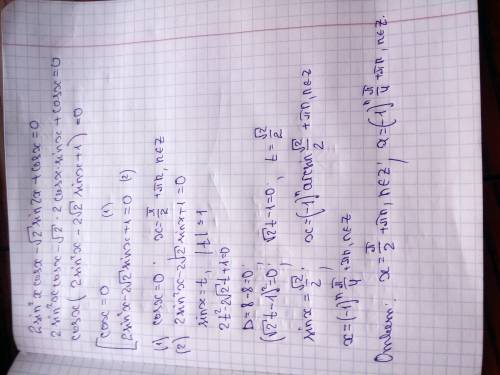 2sin²x cosx - √2 sin2x + cosx = 0
2sin²x cosx - √2 · 2cosx·sinx + cosx = 0
cosx (2sin²x - 2√2 sinx + 1) = 0
[ cosx = 0 (1)
[ 2sin²x - 2√2 sinx + 1 = 0 (2)
(1) cosx = 0; x = π/2 + πn, n∈Z
(2) 2sin²x - 2√2 sinx + 1 = 0
sinx = t, |t| ≤ 1
2t² - 2√2t + 1 = 0
D = 8 - 8 = 0
(√2t - 1)² = 0; √2t - 1 = 0; t = √2/2
sinx = √2/2; x = (-1)ⁿ arcsin √2/2 + πn, n∈Z
x = (-1)ⁿ π/4 + πn, n∈Z
Ответ: x = π/2 + πn, n∈Z; x = (-1)ⁿ π/4 + πn, n∈Z.